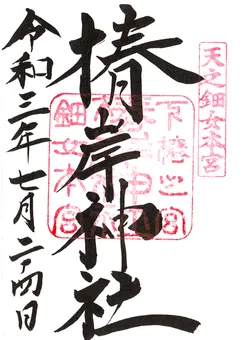 天之鈿女本宮
椿岸神社
下椿之宮
鈿女本宮
令和三年七月二十四日